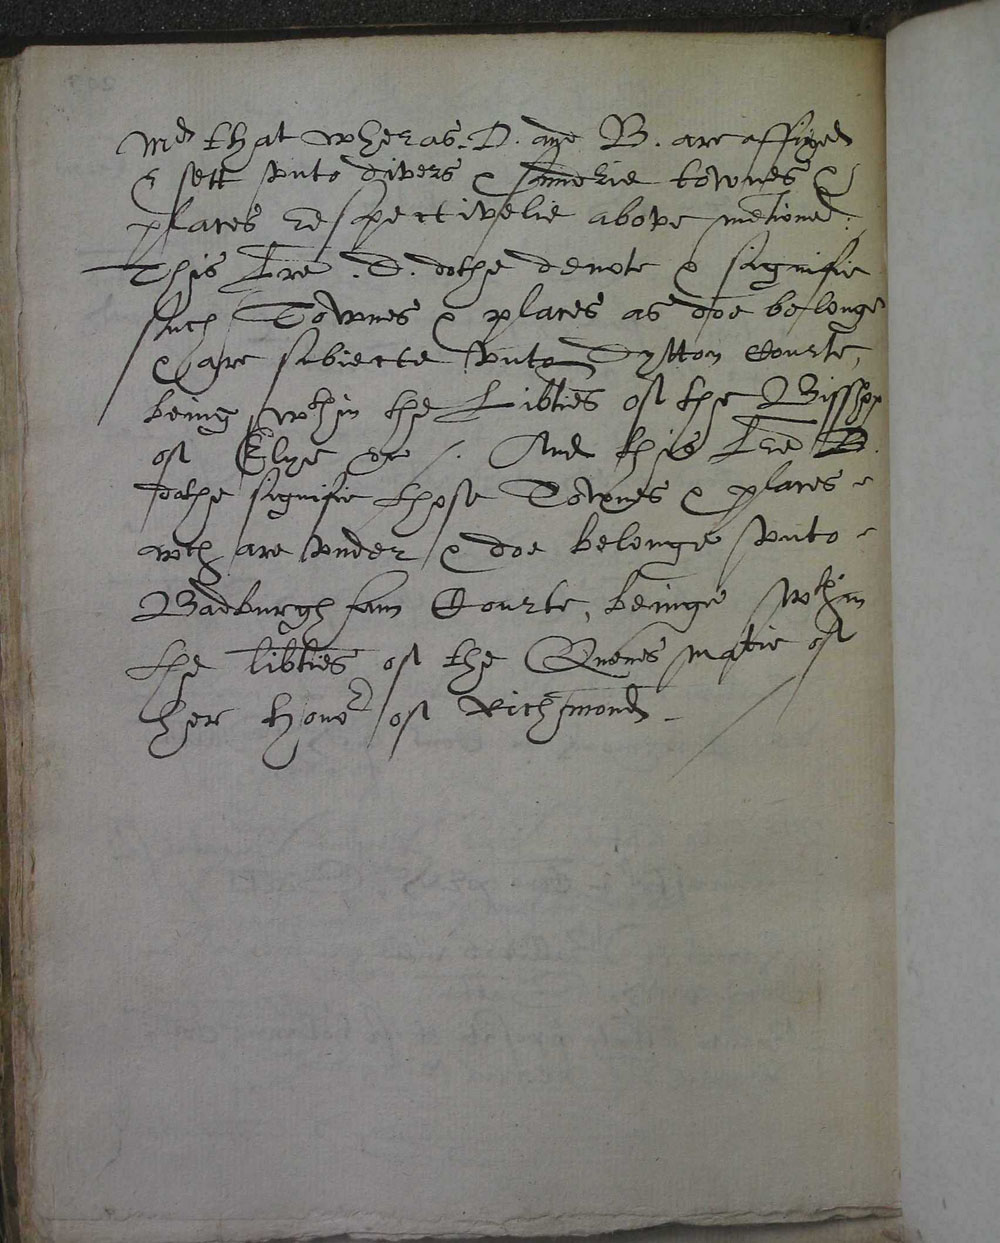 Md that wheras .D. and B. are affixed
& sett vnto divers & sundrie townes &
places respectivelie above mētioned:
This Lre .D. dothe denote & signifie
such Townes & places as doe belonge
& are subiecte vnto Dytton Courte,
being wthin the Libties of the Bisshop
of Elye &c /. And this Lre B.
dothe signifie those Townes & places
wch are vnder & doe belonge vnto
Badburgham Courte, beinge wthin
the libties of the Quenes Matie of
her honor of Richmond